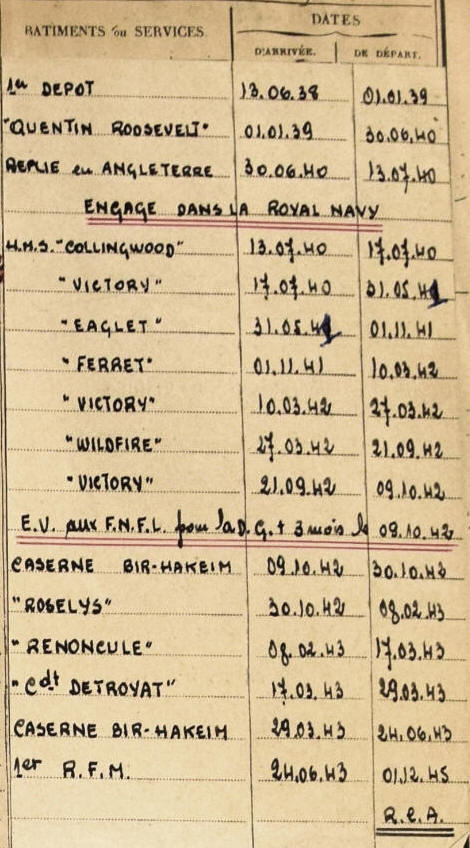 BATIMENTS ou SERVICES DATES
D'ARRIVÉE. DE DÉPART.
1er DEPOT 13.06.38 01.01.39
"QUENTIN ROOSEVELT" 01.01.39 30.06.40
REPLIE en ANGLETERRE 30.06.40 13.07.40
ENGAGE DANS LA ROYAL NAVY
H.M.S. "COLLINGWOOD" 13.07.40 17.07.40
"VICTORY" 17.07.40 31.05.41
"EAGLET" 31.05.41 01.11.41
"FERRET" 01.11.41 10.03.42
"VICTORY" 10.03.42 27.03.42
"WILDFIRE" 27.03.42 21.09.42
"VICTORY" 21.09.42 09.10.42
E.V. aux F.N.F.L. pour la D.G. + 3 mois le 09.10.42
CASERNE BIR-HAKEIM 09.10.42 30.10.42
"ROSELYS" 30.10.42 08.02.43
"RENONCULE" 08.02.43 17.03.43
"Cdt DETROYAT" 17.03.43 29.03.43
CASERNE BIR-HAKEIM 29.03.43 24.06.43
1er R.F.M. 24.06.43 01.12.45
R.C.A.